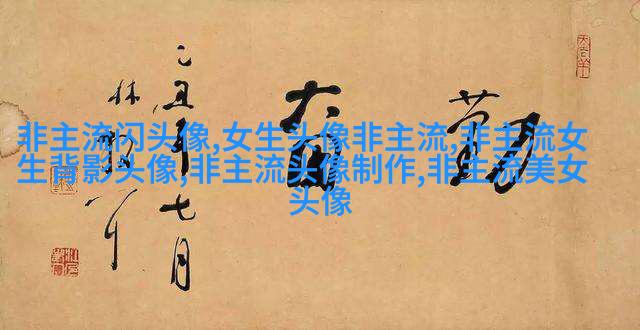 非主流闪头像,女生头像非主流,非主流女
生背影头像,非主流头像制作,非主流美女
头像
勤奋
乙丑年七月
林